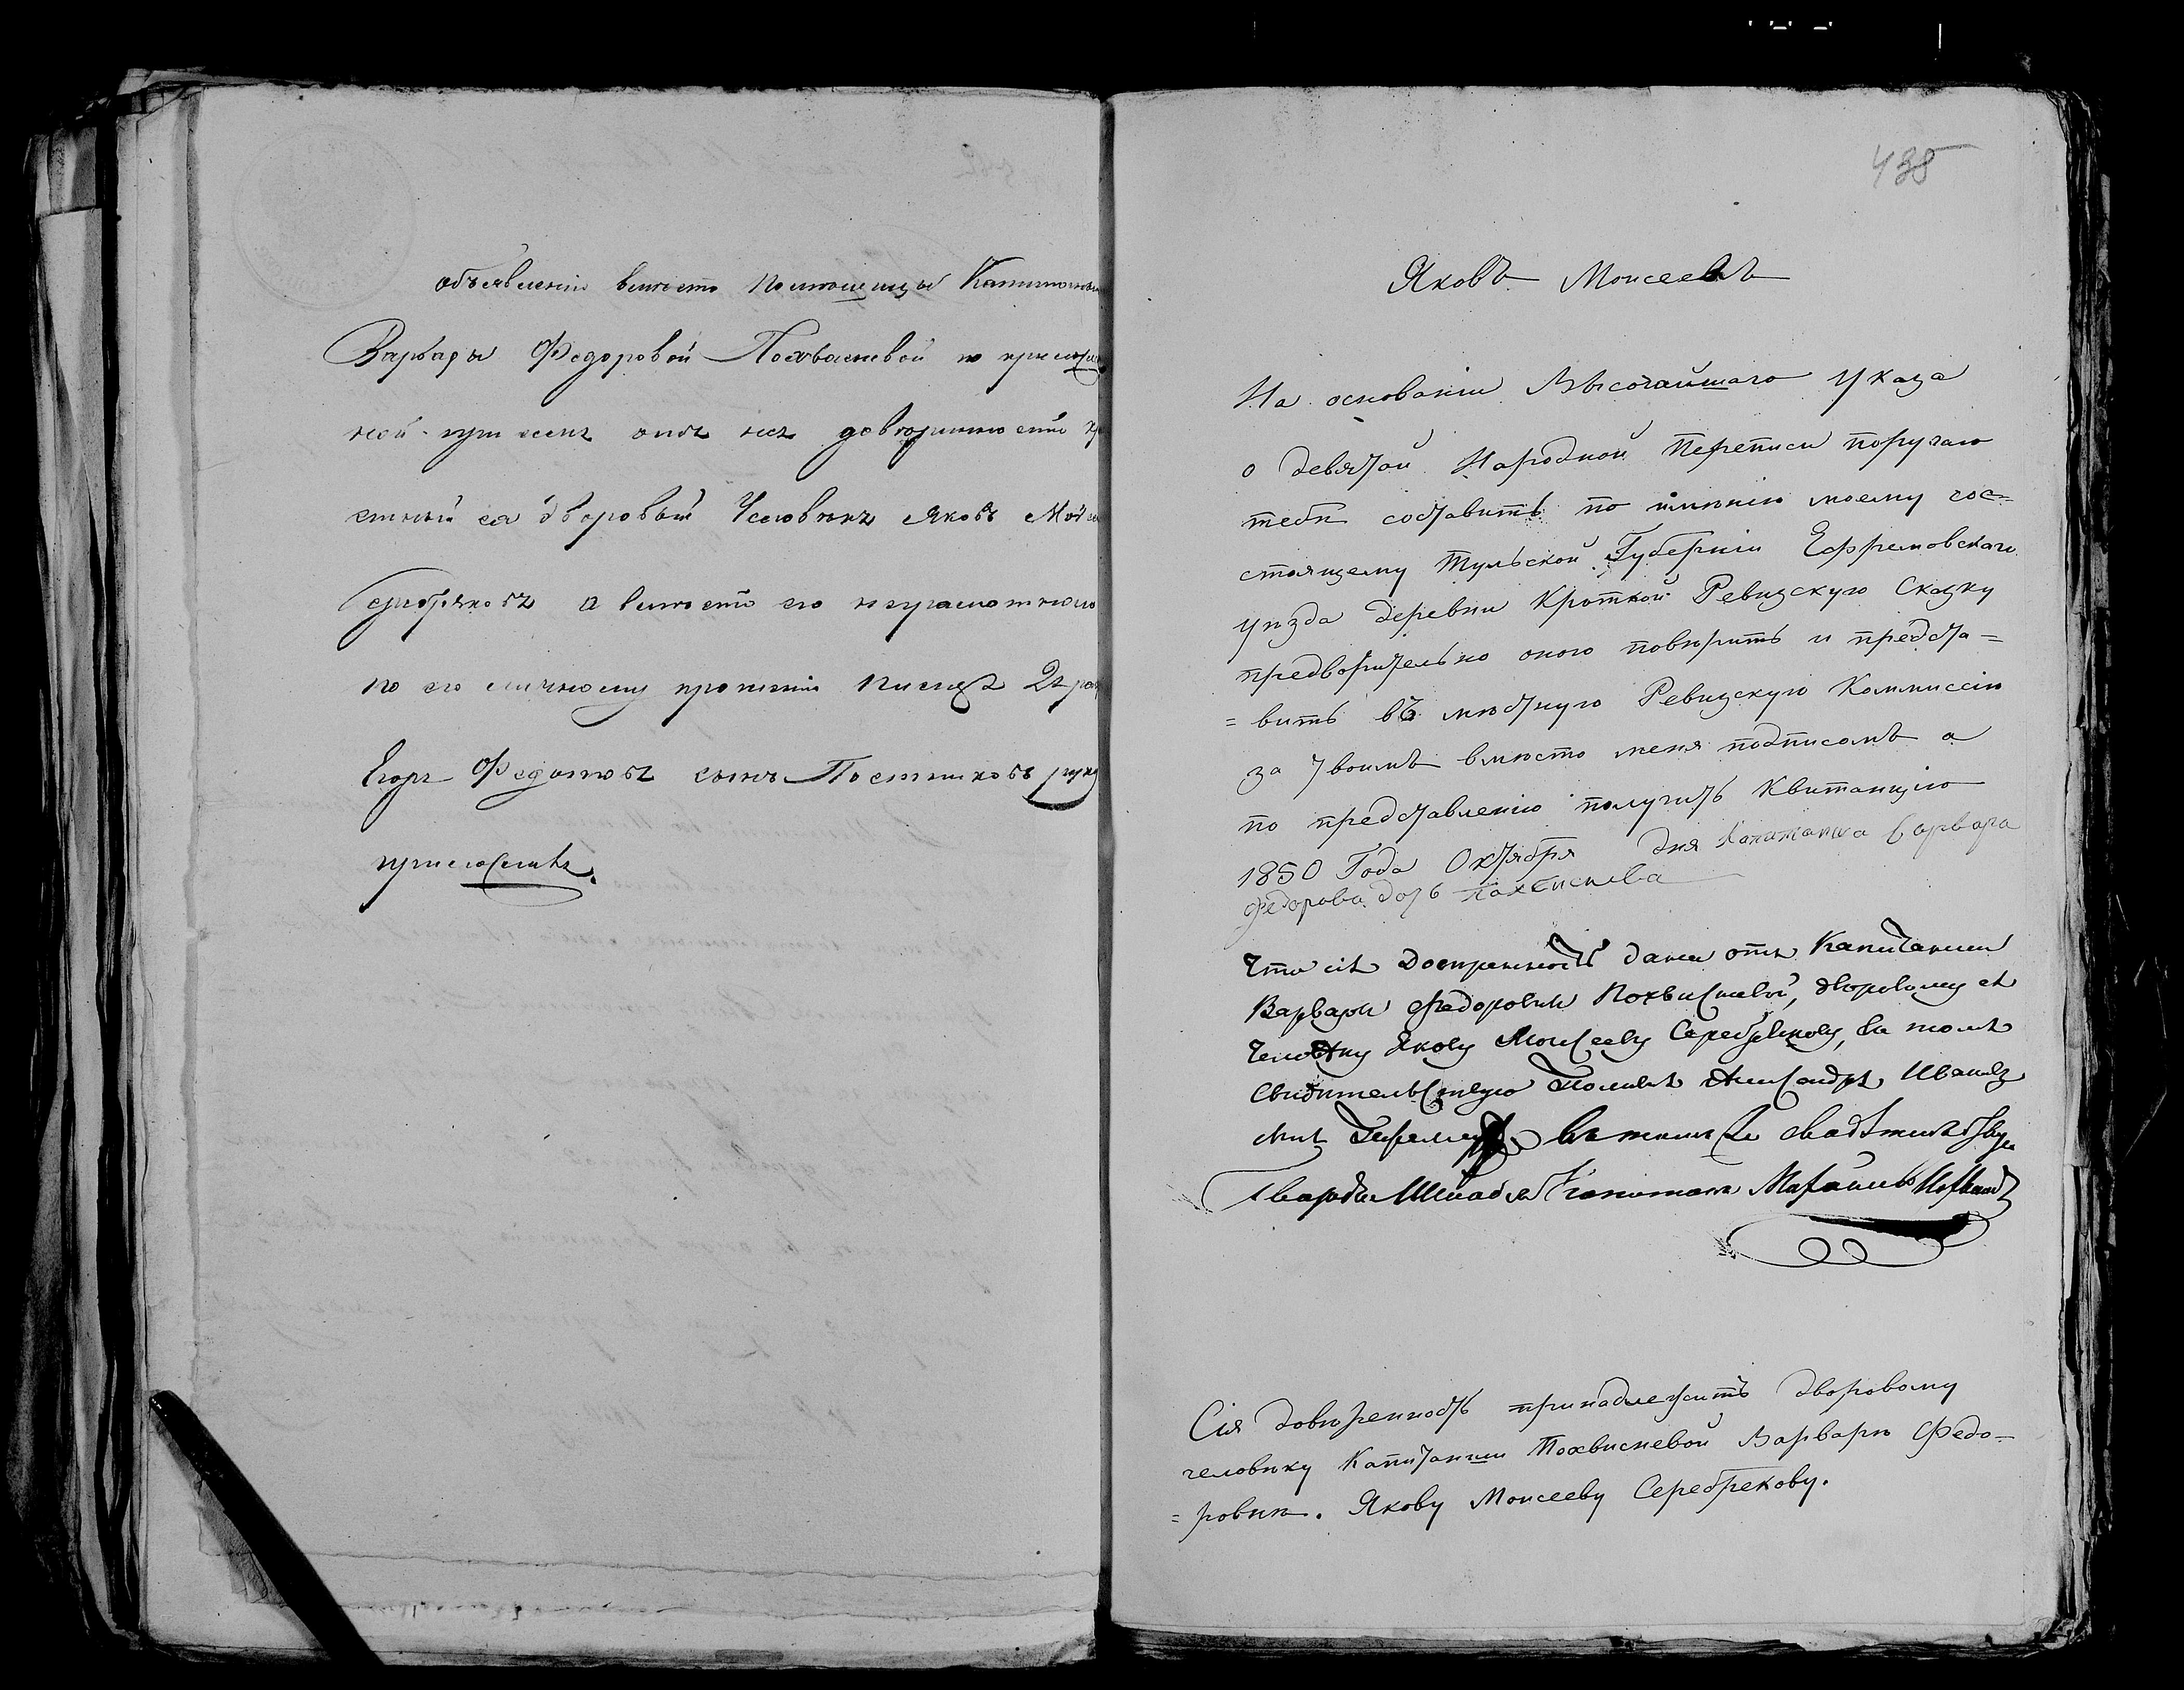 объявленію вмѣсто Помѣщицы Капитанши
Варвары Федоровой Похвисневой по приложен
ной при семъ отъ нея довѣренности кр
стный ея дворовый Человѣкъ Яковъ Мои
Серебряковъ а вмѣсто его неграмотного
по его личному прошенію Писецъ 2 раз
Егоръ Федотовъ сынъ Постниковъ руку
приложилъ.
435
Яковъ Моисеевъ
На основаніи Высочайшаго Указа
о девятой Народной Переписи поручаю
тебѣ составить по имѣнію моему сос=
стоящему Тульской Губерніи Ефремовскаго
уѣзда деревни Кроткой Ревизскую Сказку
предворительно оною повѣрить и предста=
=вить въ мѣстную Ревизскую Коммиссію
за твоимъ вмѣсто меня подписомъ а
по представленію получить Квитанцію
1850 Года Октября дня Капитанша Варвара
Федорова дочь Похвиснева
Что сія Довѣренность дана отъ Капитанши
Варвары Федоровны Похвисневой, дворовому ея
человѣку Якову Моисееву Серебрякову, въ томъ
свидѣтельствую Александръ Ивановъ
сынъ въ томъ же свидѣтельствую
Гвардіи Штабсъ Капитанъ
Сія довѣренность принадлежитъ дворовому
человѣку Капитанши Похвисневой Варвары Федо=
=ровны. Якову Моисееву Серебрекову.